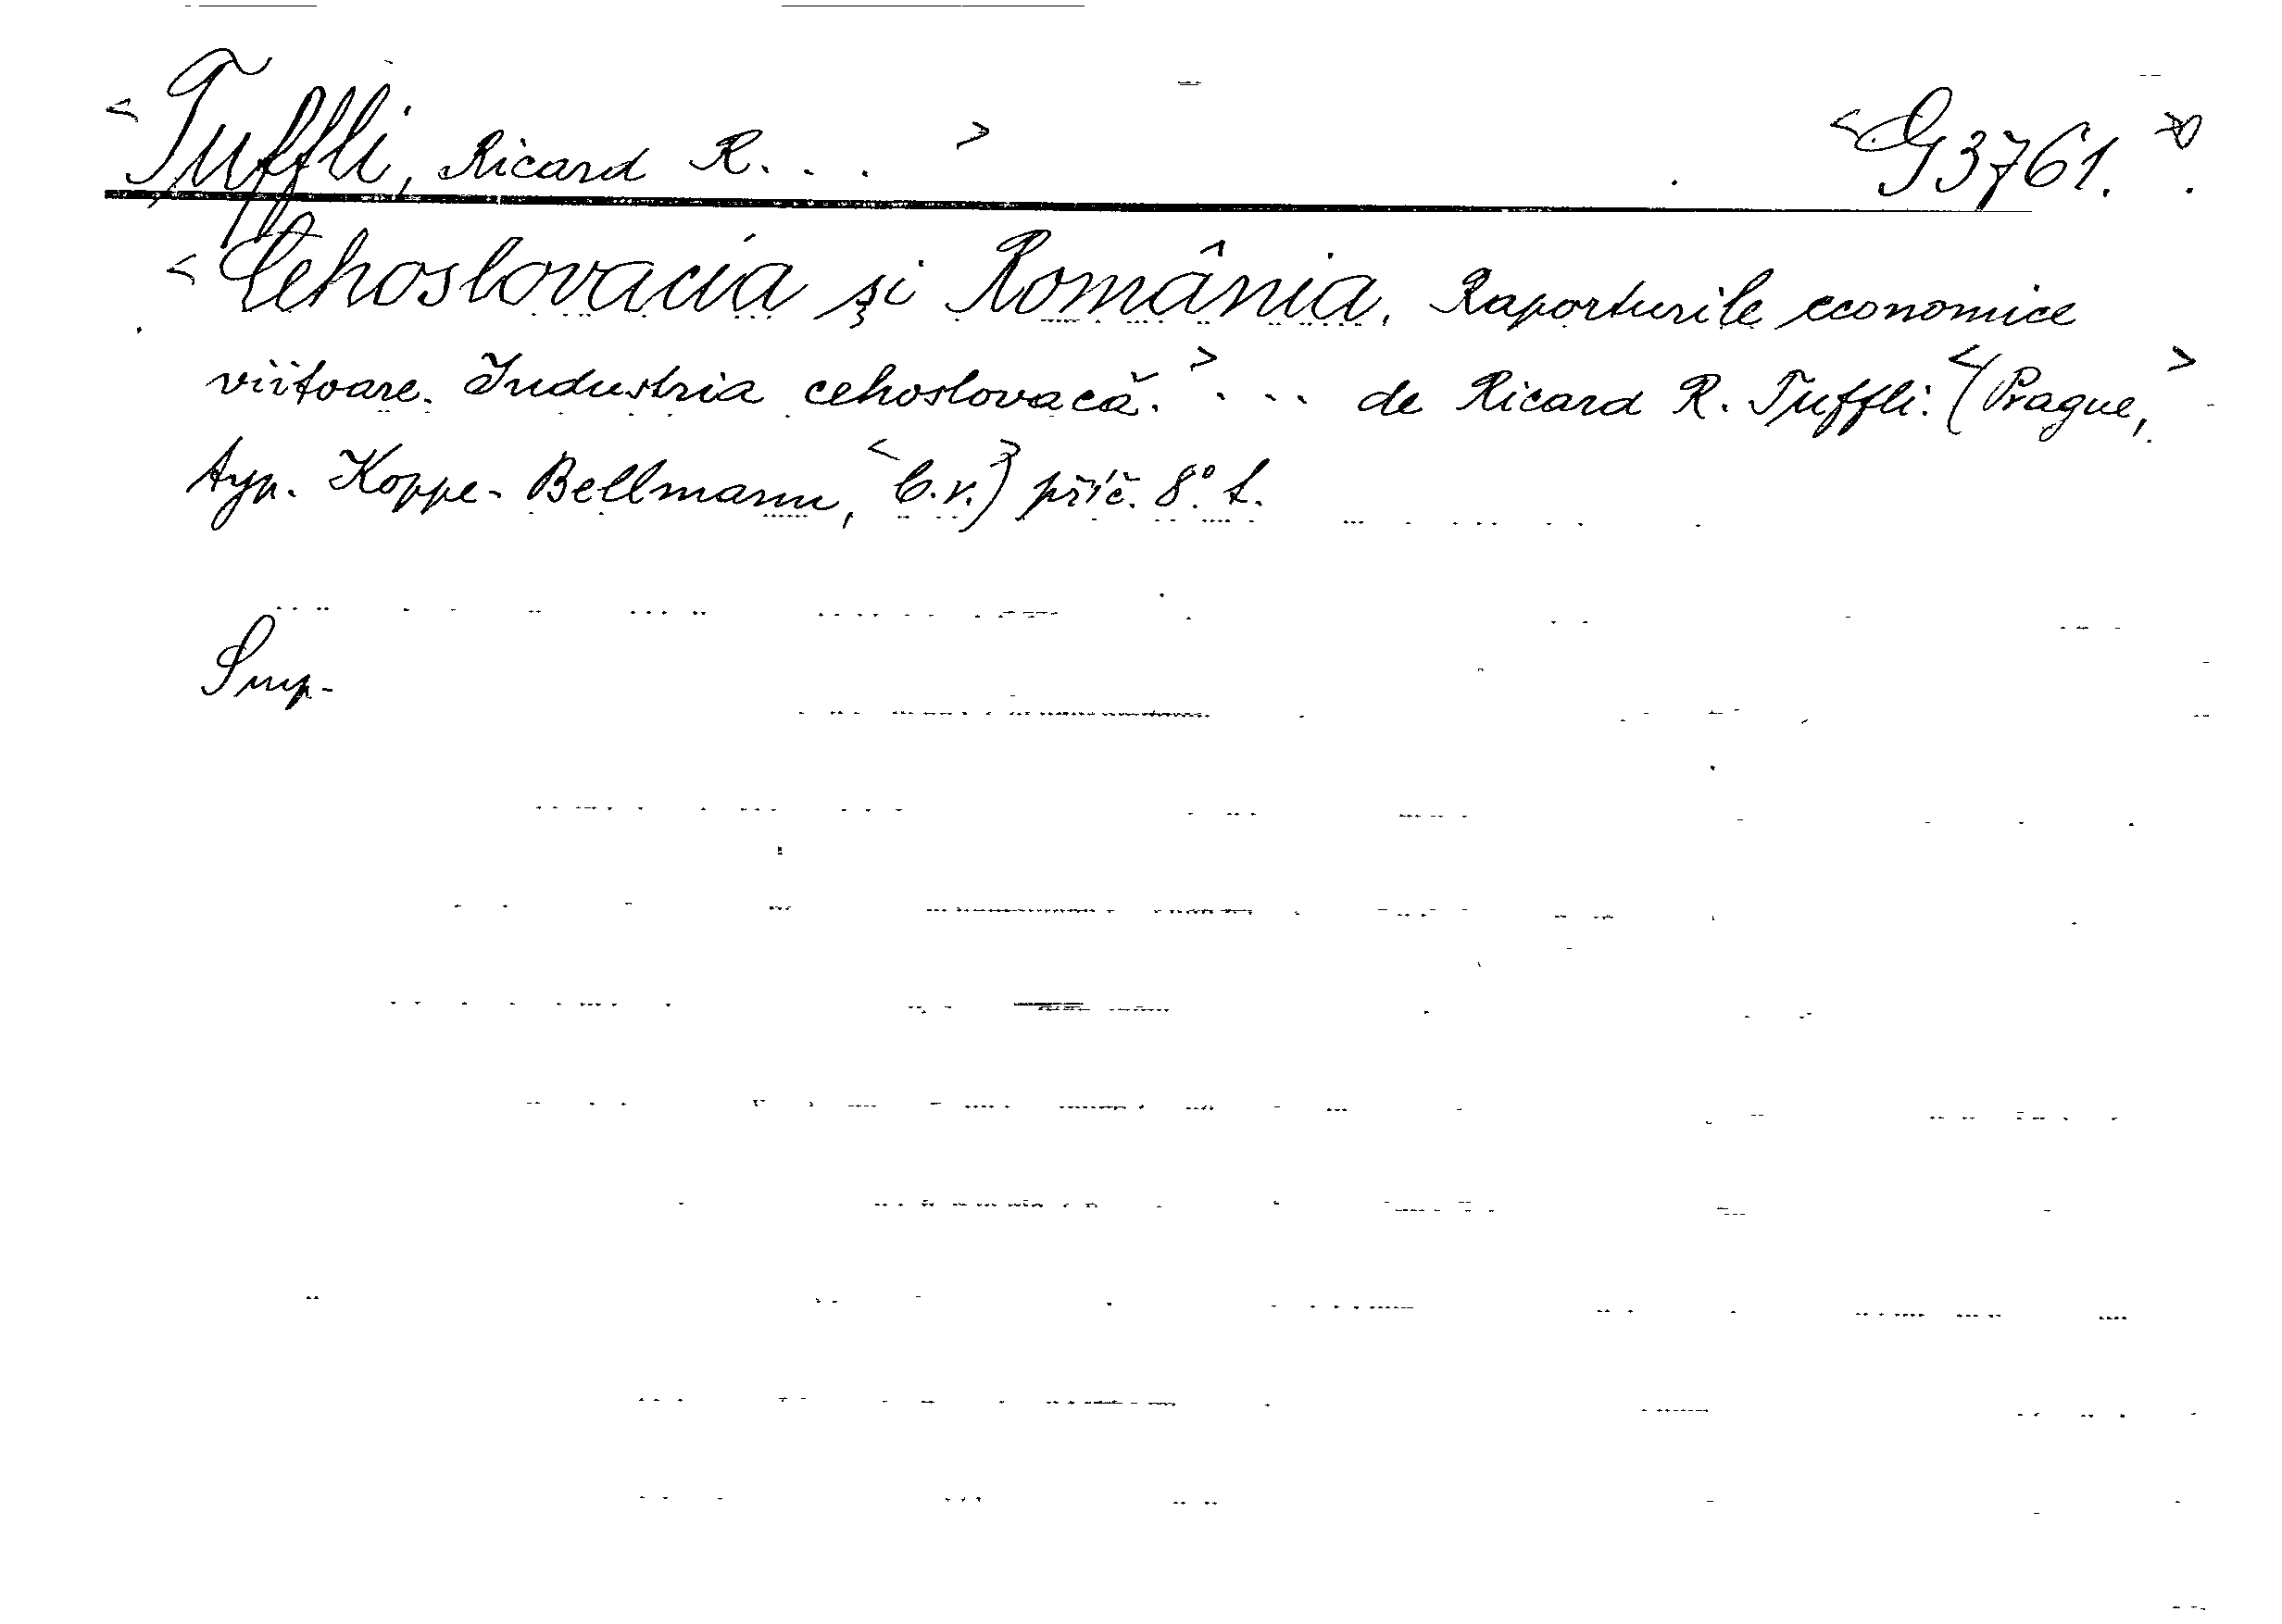 <Tuffli, Ricard R. . . > <G 3761.>
<Cehoslovacia și România. Raporturile economice
viitoare. Industria cehoslovacă.> ... de Ricard R. Tuffli. <(Prague,>
typ. Koppe-Bellmann, <b.r.)> příč. 8°. t.